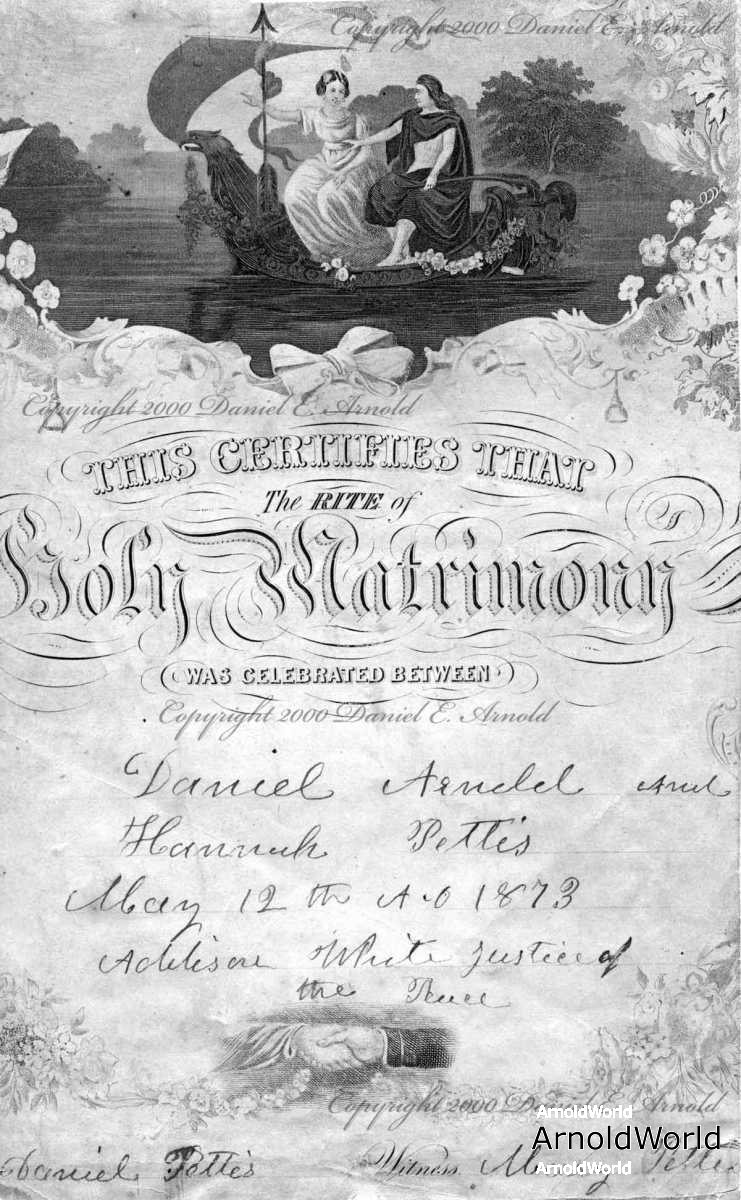 Copyright 2000 Daniel E. Arnold
Copyright 2000 Daniel E. Arnold
THIS CERTIFIES THAT
The RITE of
Holy Matrimony
WAS CELEBRATED BETWEEN
Copyright 2000 Daniel E. Arnold
Daniel Arnold And
Hannah Pettis
May 12 th A.D 1873
Addison White Justice of
the Peace
Copyright 2000 Daniel E. Arnold
ArnoldWorld
ArnoldWorld
Daniel Pettis Witness
ArnoldWorld